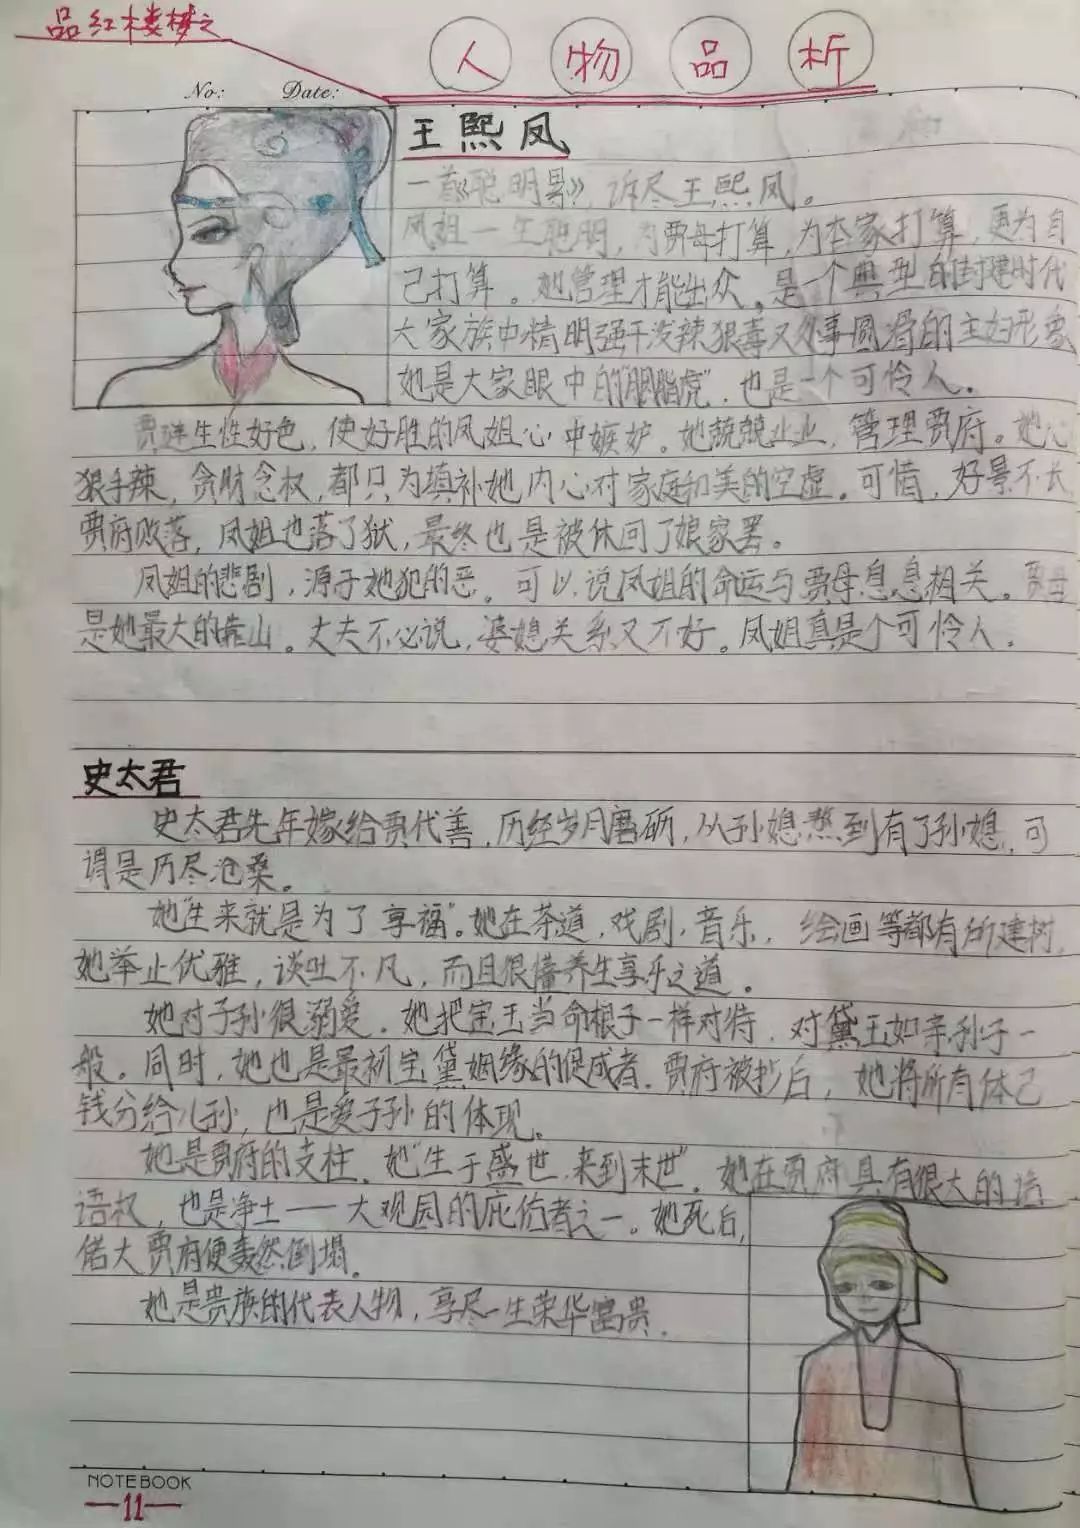 品红楼梦之
人物品析
No: Date:
王熙凤
一首《聪明累》，诉尽王熙凤。
凤姐一生聪明，为贾母打算，为本家打算，更为自
己打算。她管理才能出众，是一个典型的封建时代
大家族中精明强干泼辣狠毒又处事圆滑的主妇形象
她是大家眼中的“胭脂虎”，也是一个可怜人。
贾琏生性好色，使好胜的凤姐心中嫉妒。她兢兢业业，管理贾府。她心
狠手辣，贪财念权，都只为填补她内心对家庭和美的空虚。可惜，好景不长
贾府败落，凤姐也落了狱，最终也是被休回了娘家罢。
凤姐的悲剧，源于她犯的恶。可以说凤姐的命运与贾母息息相关。贾母
是她最大的靠山。丈夫不必说，婆媳关系又不好。凤姐真是个可怜人。
史太君
史太君先年嫁给贾代善，历经岁月磨砺，从孙媳熬到有了孙媳，可
谓是历尽沧桑。
她“生来就是为了享福”。她在茶道，戏剧，音乐，绘画等都有所建树，
她举止优雅，谈吐不凡，而且很懂养生享乐之道。
她对子孙很溺爱。她把宝玉当命根子一样对待，对黛玉如亲孙子一
般。同时，她也是最初宝黛姻缘的促成者。贾府被抄后，她将所有体己
钱分给儿孙，也是爱子孙的体现。
她是贾府的支柱。她“生于盛世，来到末世”。她在贾府具有很大的话
语权，也是净土——大观园的庇佑者之一。她死后，
偌大贾府便轰然倒塌。
她是贵族的代表人物，享尽一生荣华富贵。
NOTEBOOK
—11—